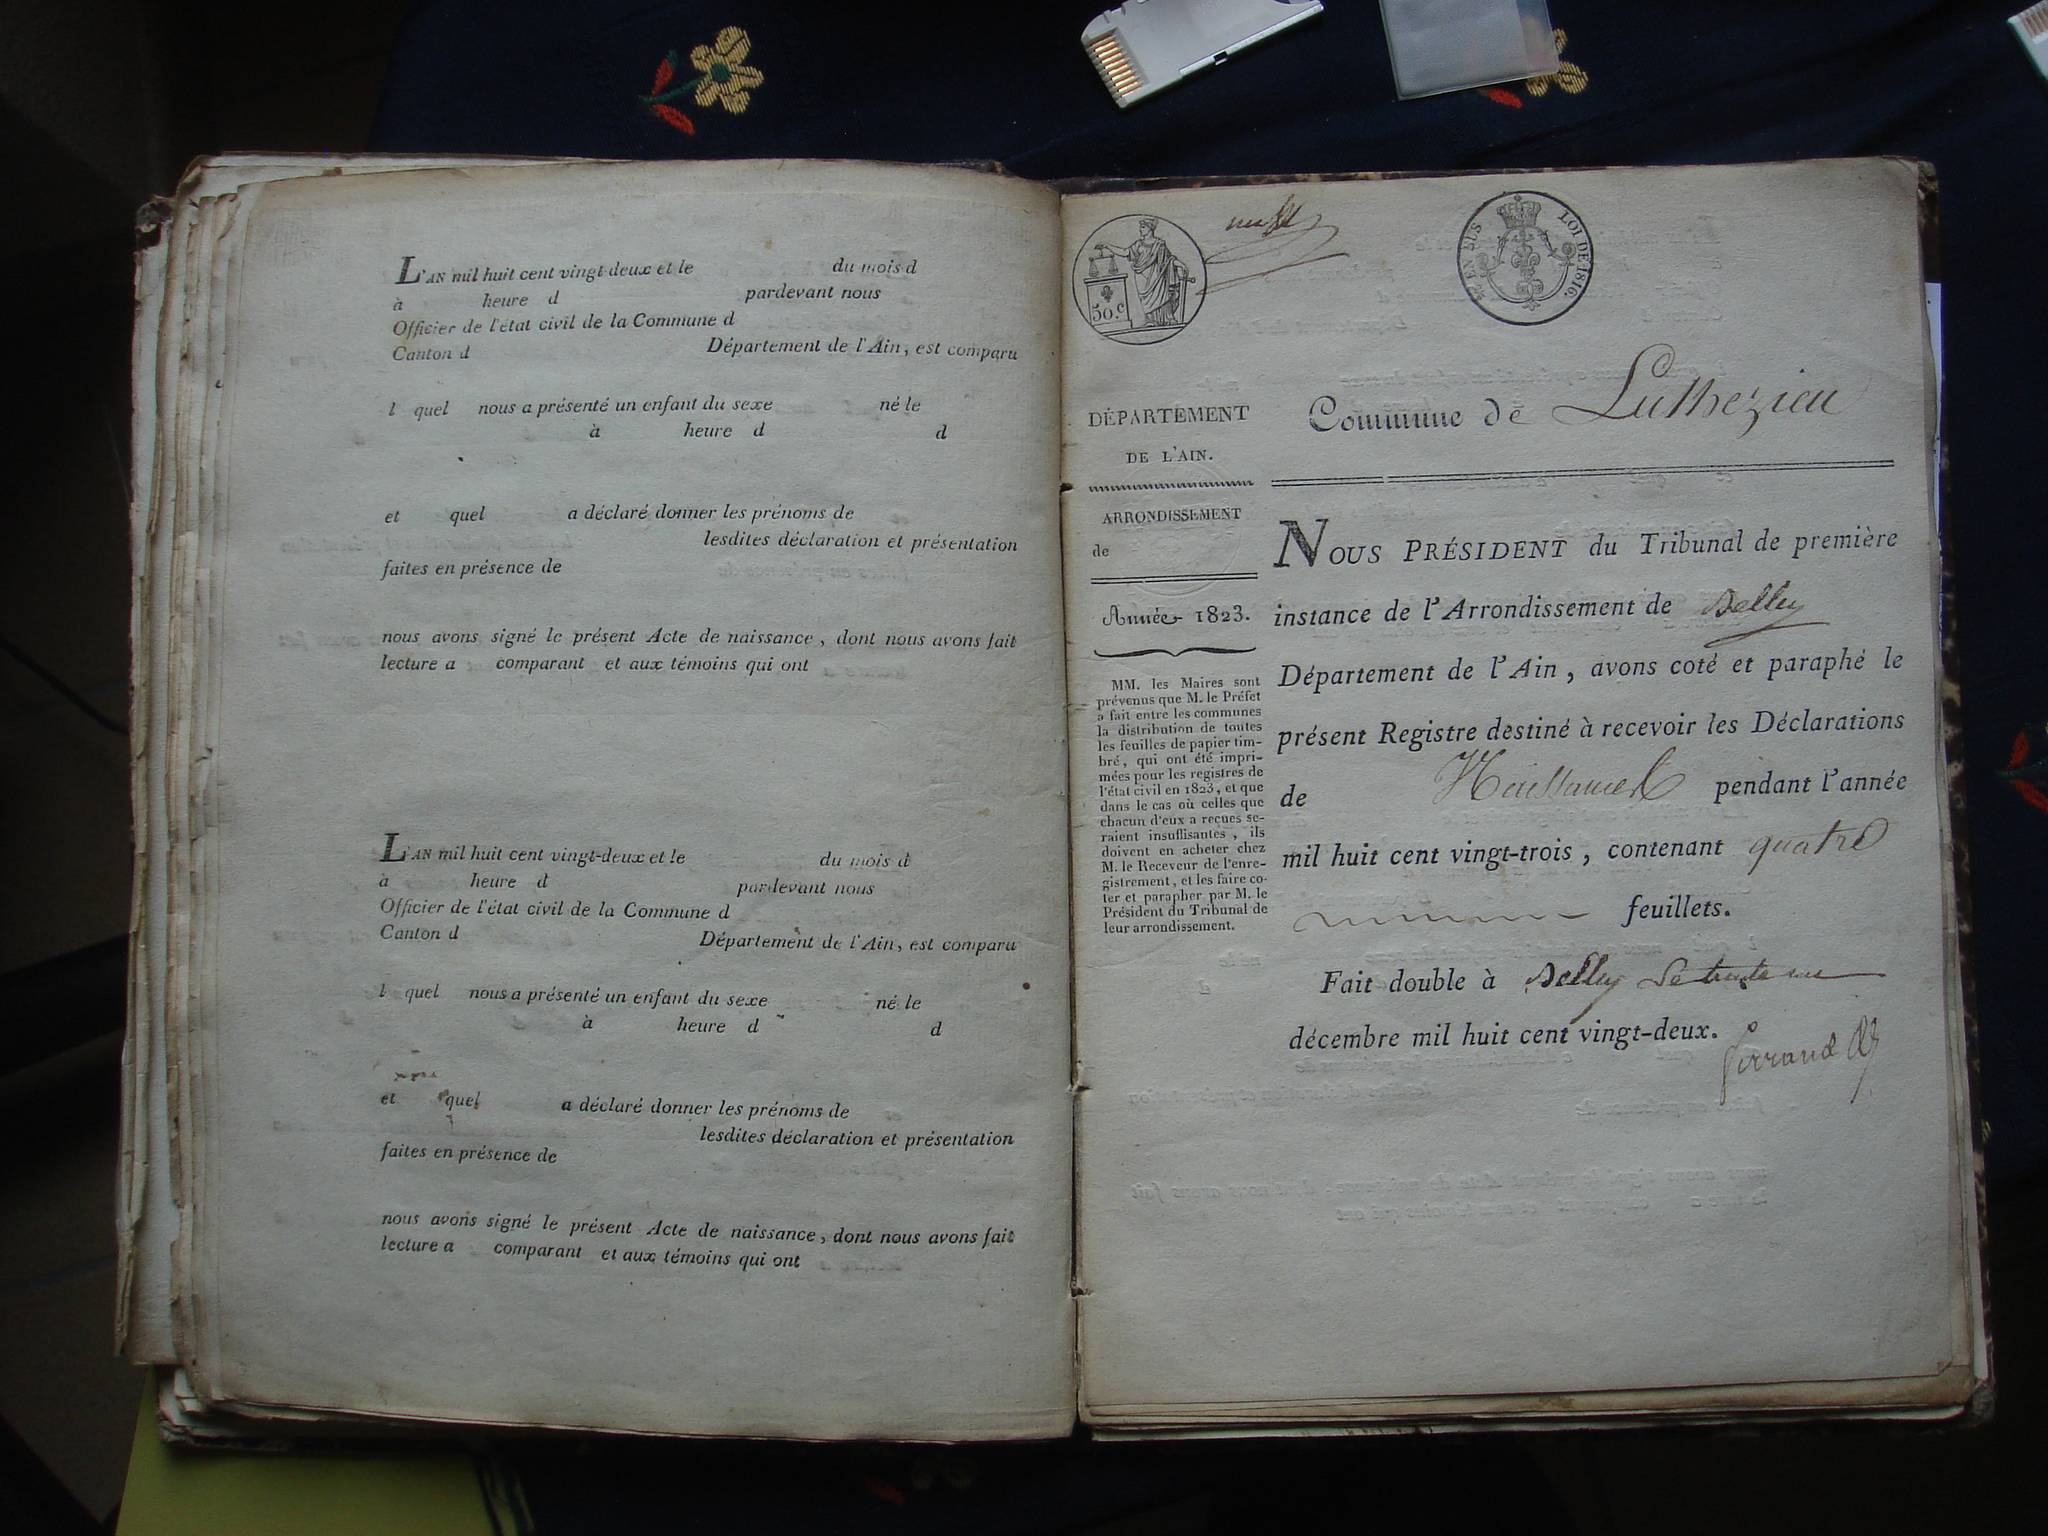 L'AN mil huit cent vingt-deux et le du mois d
à heure d pardevant nous
Officier de l'état civil de la Commune d
Canton d Département de l'Ain, est comparu
l quel nous a présenté un enfant du sexe né le
à heure d d
et quel a déclaré donner les prénoms de
lesdites déclaration et présentation
faites en présence de
nous avons signé le présent Acte de naissance, dont nous avons fait
lecture a comparant et aux témoins qui ont
L'AN mil huit cent vingt-deux et le du mois d
à heure d pardevant nous
Officier de l'état civil de la Commune d
Canton d Département de l'Ain, est comparu
l quel nous a présenté un enfant du sexe né le
à heure d d
et quel a déclaré donner les prénoms de
lesdites déclaration et présentation
faites en présence de
nous avons signé le présent Acte de naissance, dont nous avons fait
lecture a comparant et aux témoins qui ont
50.c
EN SUS LOI DE 1816.
DÉPARTEMENT
DE L'AIN.
ARRONDISSEMENT
de
Année 1823.
MM. les Maires sont
prévenus que M. le Préfet
a fait entre les communes
la distribution de toutes
les feuilles de papier tim-
bré, qui ont été impri-
mées pour les registres de
l'état civil en 1823, et que
dans le cas où celles que
chacun d'eux a reçues se-
raient insuffisantes, ils
doivent en acheter chez
M. le Receveur de l'enre-
gistrement, et les faire co-
ter et parapher par M. le
Président du Tribunal de
leur arrondissement.
Commune de Luthezieu
NOUS PRÉSIDENT du Tribunal de première
instance de l'Arrondissement de Belley
Département de l'Ain, avons coté et paraphé le
présent Registre destiné à recevoir les Déclarations
de Naissances pendant l'année
mil huit cent vingt-trois, contenant quatre
feuillets.
Fait double à Belley le trente un
décembre mil huit cent vingt-deux.